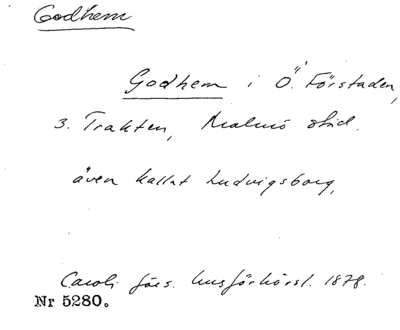 Godhem
Godhem i Ö. Förstaden,
3. Trakten, Malmö stad.
även kallat Ludvigsborg,
Caroli förs. husförhörsl. 1878.
Nr 5280.